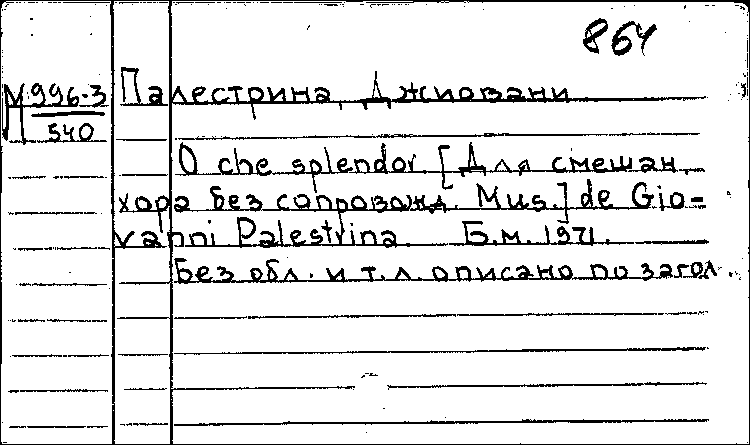 864
М 996-3 Палестрина, Джиовани
540
O che splendor. [Для смешан.
хора без сопровожд. Mus.] de Gio-
vanni Palestrina. Б.м. 1971.
Без обл. и т.л. описано по загол.